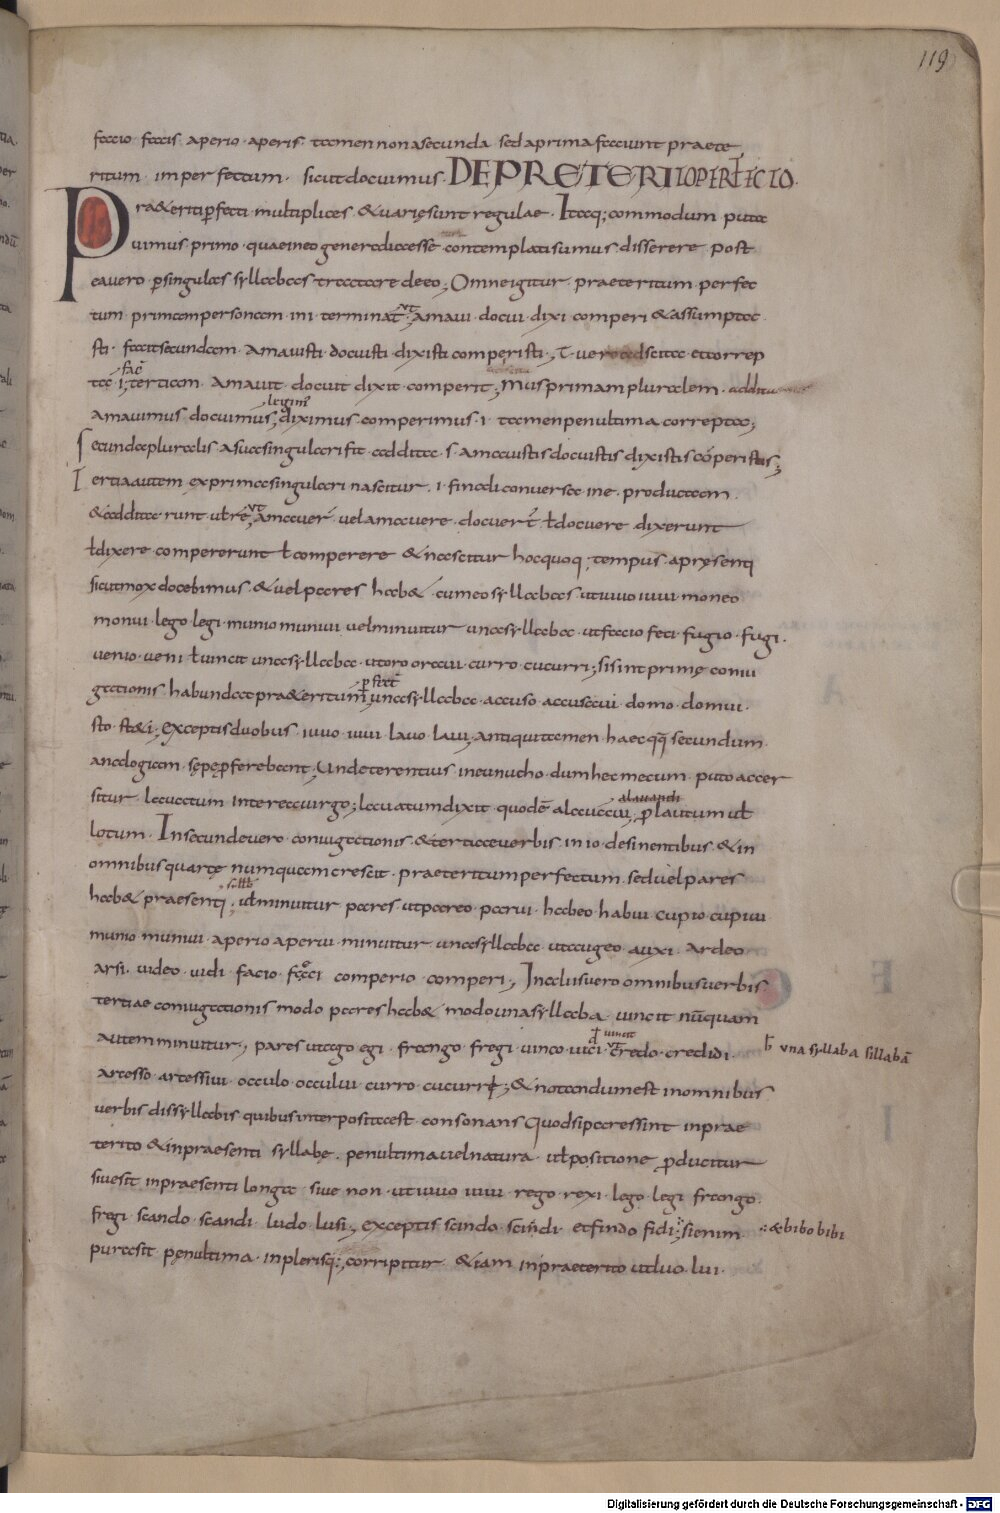 119
faccio faccis aperio · aperis tamen non a secunda sed a prima faciunt praete
ritum · imperfectum · sicut docuimus · DE PRETERITO PERFECTO ·
Praeteriti perfecti multiplices · & varię sunt regulae · Itaq; commodum puta
uimus primo · quae in eo genera diacesse contemplati sumus disserere post
ea vero p singulas syllabas tractare de eo ; Omne igitur praeteritum perfec
tum primam personam in i terminat · ut amaui docui dixi comperi & assumpta
sti · facit secundam · Amauisti docuisti dixisti comperisti ; T vero adscita et correp
ta i ; terticam Amauit docuit dixit comperit ; Mus primam pluralem · addita
amauimus docuimus ; diximus comperimus · i tamen penultima correpta ;
legim
Secunda pluralis a sua singulari fit addita · s · amauistis docuistis dixistis coperistis ;
Tertia autem ex prima singulari nascitur · i finali conuersa in e · producatam ·
& addita runt ut re ut amauer uel amauere · docuer t docuere dixerunt
t dixere compererunt t comperere & nascitur hoc quoq; tempus a pręsenti
sicut mox docebimus · & uel pares hab& cum eo syllabas ut iuuo iuui moneo
monui · lego legi · munio muniui uel minuitur una syllaba · ut facio feci fugio · fugi ·
uenio · ueni t uincit una syllaba · ut oro oraui · curro cucurri ; si sint primę coniu
gationis habunda praeteritum una syllaba · accuso accusaui domo · domui ·
sto st&i ; Exceptis duobus iuuo iuui lauo laui ; antiqui tamen haec qq secundum
analogiam · sępe pferebant ; Unde terentius in eunucho · dum hec mecum · puto accer
situr lauatum interea uirgo ; lauatum dixit quod e a lauaui ; p lautum ut
a lauandi
lotum · In secunda uero coniugationis · & tertia ae uerbis in io desinentibus · & in
omnibus quartę numquam crescit · praeteritum perfectum sed uel pares
hab& praesenti · ut minuitur pares ut pareo parui · habeo habui cupio cupiui
munio muniui · aperio aperui · minuitur una syllaba ut augeo auxi · Ardeo
arsi · uideo uidi facio feci comperio · comperi ; In aliis uero omnibus uerbis
tertiae coniugationis modo pares hab& modo una syllaba uincit nūquam
autem minuitur ; pares ut ago egi · frango fregi uinco uici · ut credo · credidi ·
t uincit
una syllaba sillabā
arcesso arcessiui occulo occului curro cucurri ; & notandum est in omnibus
uerbis dissyllabis quibus interposita est consonans Quod si pares sint in prae
terito & in praesenti syllabę · penultima uel natura · ut positione pducitur
siue sit in praesenti longa siue non · ut iuuo iuui rego rexi · lego legi frango ·
fregi scando scandi ludo lusi ; exceptis scindo scindi et findo fidi ; si enim
& bibo bibi
pura sit penultima · in plerisq; corripitur & iam in praeterito ut luo lui ·
Digitalisierung gefördert durch die Deutsche Forschungsgemeinschaft - DFG